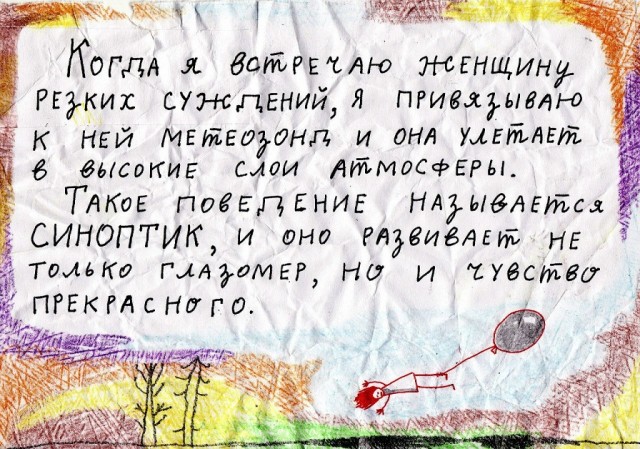 Когда я встречаю женщину
резких суждений, я привязываю
к ней метеозонд и она улетает
в высокие слои атмосферы.
Такое поведение называется
СИНОПТИК, и оно развивает не
только глазомер, но и чувство
прекрасного.